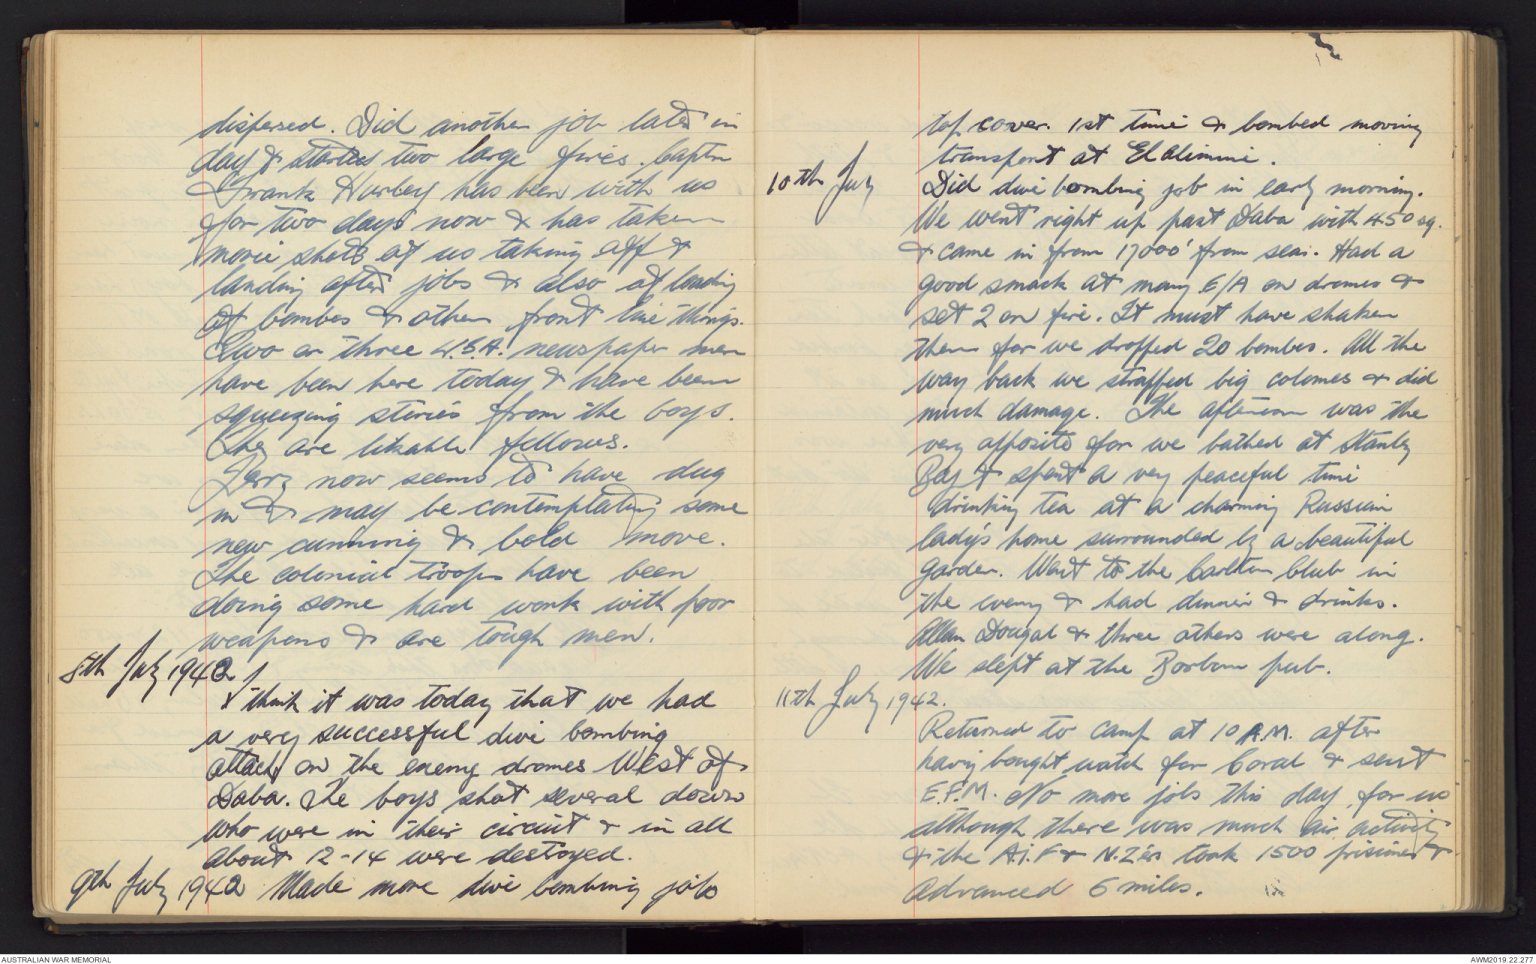 dispersed. Did another job later in
day & started two large fires. Captn
Frank Hurley has been with us
for two days now & has taken
movie shots of us taking off &
landing after jobs & also of loading
of bombs & other front line things.
Two or three U.S.A. newspaper men
have been here today & have been
squeezing stories from the boys.
They are likable fellows.
Jerry now seems to have dug
in & may be contemplating some
new cunning & bold move.
The colonial troops have been
doing some hard work with poor
weapons & are tough men.
8th July 1942
I think it was today that we had
a very successful dive bombing
attack on the enemy dromes West of
Daba. The boys shot several down
who were in their circuit & in all
about 12-14 were destoyed.
9th July 1942 Made more dive bombing jobs
top cover. 1st time & bombed moving
transport at El Alimini.
10th July Did dive bombing job in early morning.
We went right up past Daba with 450 sq.
& came in from 17000' from sea. Had a
good smack at many E/A on dromes &
set 2 on fire. It must have shaken
them for we dropped 20 bombs. All the
way back we straffed big colomes & did
much damage. The afternoon was the
very opposite for we bathed at Stanley
Bay & spent a very peaceful time
drinking tea at a charming Russian
lady's home surrounded by a beautiful
garden. Went to the Carlton Club in
the eveng & had dinner & drinks.
Allan Dougal & three others were along.
We slept at the Borbon pub.
11th July 1942.
Returned to camp at 10 A.M. after
having bought watch for Coral & sent
E.F.M. No more jobs this day for us
although there was much air activity
& the A.I.F & N.Z'ers took 1500 prisoners &
advanced 6 miles.
AUSTRALIAN WAR MEMORIAL
AWM2019.22.277